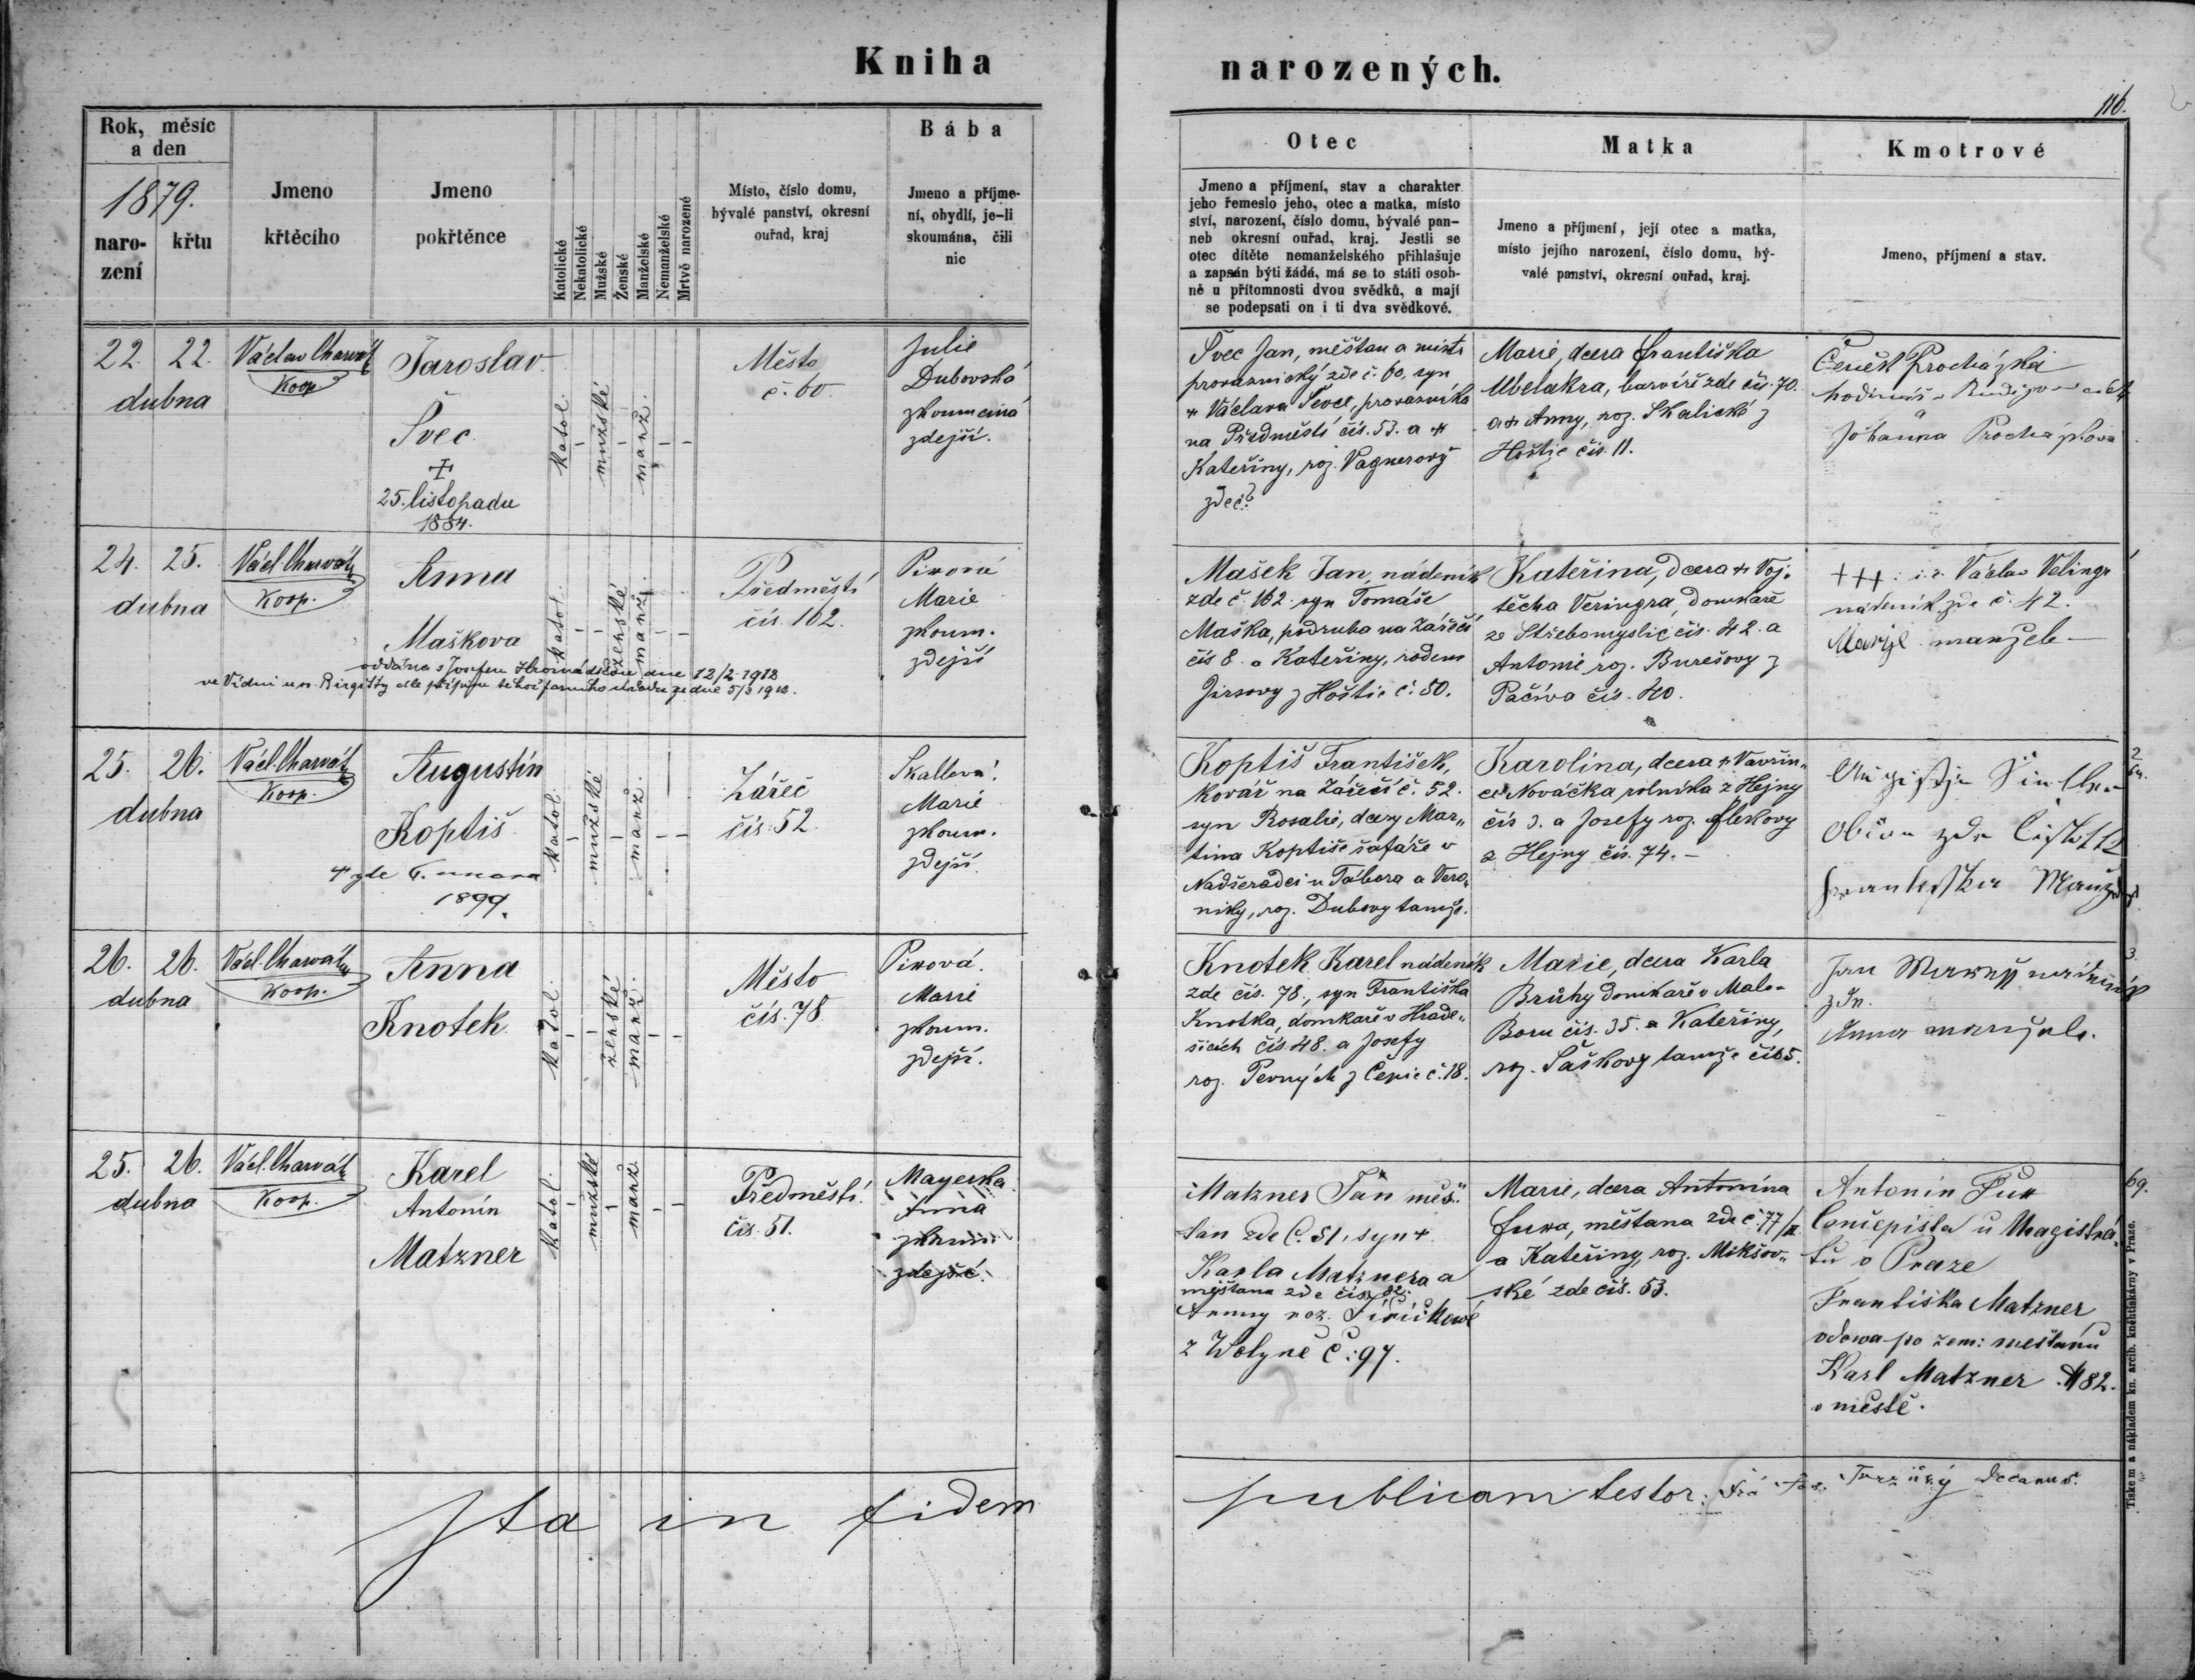 Kniha narozených.
116.
Rok, měsíc
a den
1879.
naro-
zení
křtu
Jmeno
křtěcího
Jmeno
pokřtěnce
Katolické
Nekatolické
Mužské
Ženské
Manželské
Nemanželské
Mrtvě narozené
Místo, číslo domu,
bývalé panství, okresní
ouřad, kraj
Bába
Jmeno a příjme-
ní, obydlí, je-li
skoumána, čili
nic
Otec
Jmeno a příjmení, stav a charakter
jeho řemeslo jeho, otec a matka, místo
ství, narození, číslo domu, bývalé pan-
neb okresní ouřad, kraj. Jestli se
otec dítěte nemanželského přihlašuje
a zapsán býti žádá, má se to státi osob-
ně u přítomnosti dvou svědků, a mají
se podepsati on i ti dva svědkové.
Matka
Jmeno a příjmení, její otec a matka,
místo jejího narození, číslo domu, bý-
valé panství, okresní ouřad, kraj.
Kmotrové
Jmeno, příjmení a stav.
22. 22.
dubna
Václav Charvát
Koop
Jaroslav
Švec
†
25. listopadu
1884.
katol.
mužské
manž.
Město
č. 60.
Julie
Dubovská
zkoumaná
zdejší.
Švec Jan, měštan a mistr
provaznický zde č. 60, syn
† Václava Ševce, provazníka
na Předměstí čís. 53. a †
Kateřiny, roz. Vagnerový
zdeč?
Marie, dcera Františka
Ubelakra, barvíře zde čís. 70.
a † Anny, roz. Skalické z
Hoštic čís. 11.
Čeněk Procházka
hodinář
a
Johanna Procházkova
24. 25.
dubna
Václ. Charvát
Koop.
Anna
Maškova
oddána s Josefem dne 12/2 1912
ve Vídni u sv. Birgitty dle přípisu téhož farního úřadu ze dne 5/3 1912.
katol.
ženské
manž.
Předměstí
čís. 102.
Pirová
Marie
zkoum.
zdejší
Mašek Jan, nádeník
zde č. 102. syn Tomáše
Maška, podruha na Zářečí
čís 8. a Kateřiny, rodem
Jirsovy z Hoštic č. 50.
Kateřina, dcera † Voj-
těcha Veringra, domkáře
ze Střebomyslic čís. 42. a
Antonie roz. Burešovy z
Pačiva čís. 40.
+++ : Václav Velingr
nádeník zde č. 42.
25. 26.
dubna
Václ. Charvát
Koop.
Augustin
Koptiš
† zde 6. února
1899.
katol.
mužské
manž.
Zářeč
čís. 52.
Skallová
Marie
zkoum.
zdejší.
Koptiš František,
kovář na Zářečí č. 52.
syn Rosalie, dcery Mar-
tina Koptiše šafáře v
Nadšeradci u Tábora a Vero-
niky, roz. Dubovy tamže.
Karolina, dcera † Vavřin-
ce Nováčka rolníka z Hejny
čís 3. a Josefy roz. Flekovy
z Hejny čís. 74. -
26. 26.
dubna
Václ. Charvát
Koop.
Anna
Knotek
katol.
ženské
manž.
Město
čís. 78
Pirová.
Marie
zkoum.
zdejší.
Knotek Karel nádeník
zde čís. 78., syn Františka
Knotka, domkaře v Hrade-
šicích čís. 48. a Josefy
roz. Pevných z Čepic č. 18.
Marie, dcera Karla
Brůhy domkaře v Malo-
Boru čís. 35. a Kateřiny,
roz. Saškovy tamže čís 5.
25. 26.
dubna
Václ. Charvát
Koop.
Karel
Antonín
Matzner
katol.
mužské
manž.
Předměstí.
čís. 51.
Mayerka
Anna
zkoum.
zdejší.
Matzner Jan měš-
tan zde č. 51, syn †
Karla Matznera a
měštana zde čís. 82.
Annny roz.
z Wolyně č: 97.
Marie, dcera Antonína
Fuxa, měštana zde č. 77/II
a Kateřiny, roz. Mikšov-
ské zde čís. 53.
Antonín Fux
Končepista u Magistrá-
tu v Praze
Františka Matzner
vdowa po zem: meštanu
Karl Matzner N 82.
v městě.
69.
Ita in fidem publicam testor: Decanus.
Tiskem a nákladem kn. arcib. knihtiskárny v Praze.